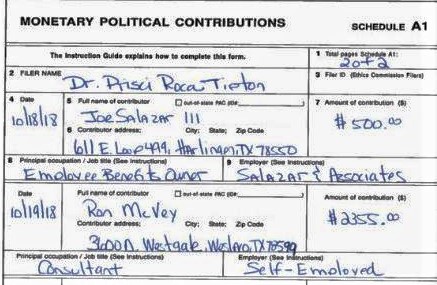 MONETARY POLITICAL CONTRIBUTIONS SCHEDULE A1
The Instruction Guide explains how to complete this form.
1 Total pages Schedule A1:
2 of 2
2 FILER NAME
Dr. Prisci Roca Tipton
3 Filer ID (Ethics Commission Filers)
4 Date
10/18/18
5 Full name of contributor out-of-state PAC (ID#:
Joe Salazar III
7 Amount of contribution ($)
$500.00
6 Contributor address; City; State; Zip Code
611 E. Loop 499, Harlingen, TX 78550
8 Principal occupation / Job title (See Instructions)
Employee Benefits Owner
9 Employer (See Instructions)
Salazar & Associates
Date
10/19/18
Full name of contributor out-of-state PAC (ID#:
Ron McVey
Amount of contribution ($)
$2355.00
Contributor address; City; State; Zip Code
3600 N. Westgate, Weslaco, TX 78599
Principal occupation / Job title (See Instructions)
Consultant
Employer (See Instructions)
Self-Employed